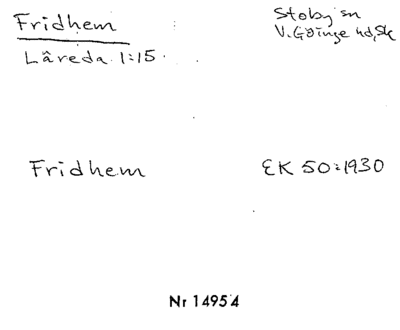 Fridhem
Stoby sn
V. Göinge hd, Sk
Låreda 1:15
Fridhem
EK 50:1930
Nr 14954